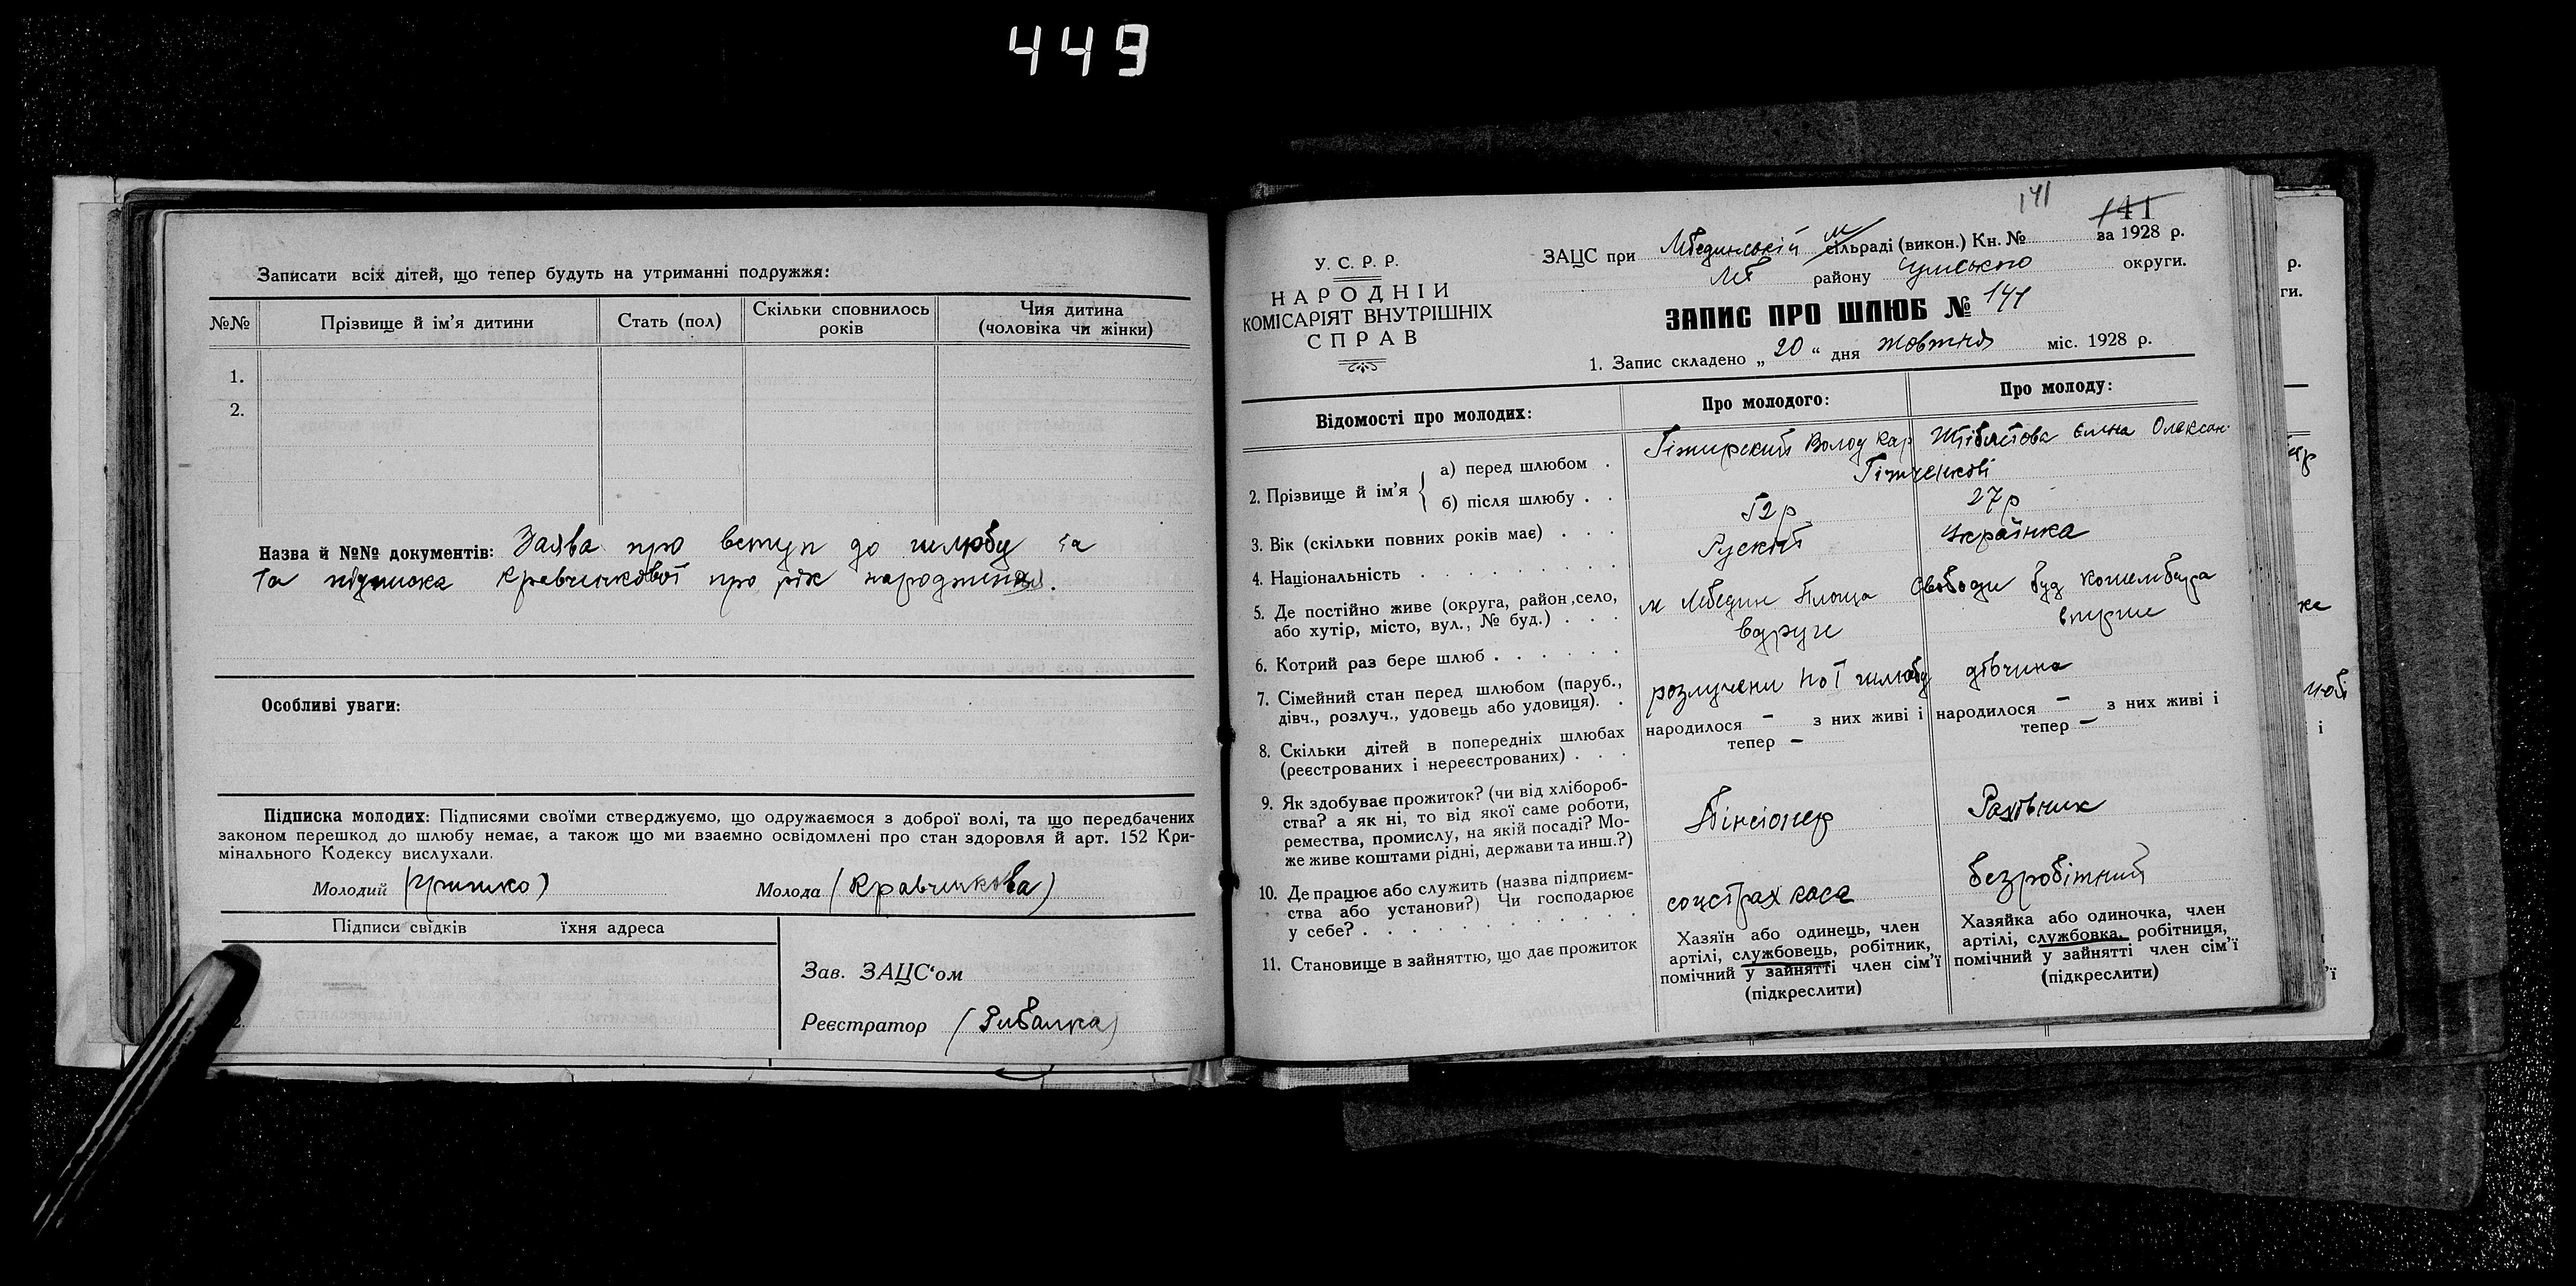 449
Записати всіх дітей, що тепер будуть на утриманні подружжя:
№№ Прізвище й ім'я дитини Стать (пол) Скільки сповнилось років Чия дитина (чоловіка чи жінки)
1.
2.
Назва й №№ документів: Заява про вступ до шлюбу та
та підписка Кравченкової про рік народження.
Особливі уваги:
Підписка молодих: Підписями своїми стверджуємо, що одружаємося з доброї волі, та що передбачених
законом перешкод до шлюбу немає, а також що ми взаємно освідомлені про стан здоровля й арт. 152 Кри-
мінального Кодексу вислухали.
Молодий (Гришко) Молода (Кравченкова)
Підписи свідків їхня адреса
Зав. ЗАЦС'ом
Реєстратор (Рибалка)
141
141
У. С. Р. Р.
НАРОДНІЙ
КОМІСАРІЯТ ВНУТРІШНІХ
СПРАВ
ЗАЦС при Лебединській м сільраді (викон.) Кн. № за 1928 р.
Леб району Сумського округи.
ЗАПИС ПРО ШЛЮБ № 141
1. Запис складено „ 20 “ дня жовтня міс. 1928 р.
Відомості про молодих: Про молодого: Про молоду:
2. Прізвище й ім'я
а) перед шлюбом . Волод\ Олексан.
б) після шлюбу . .
3. Вік (скільки повних років має) . . . 52 р 27 р
4. Національність Руский Українка
5. Де постійно живе (округа, район, село,
або хутір, місто, вул., № буд.) . . . м Лебедин Площа Свободи буд
6. Котрий раз бере шлюб . . . . . . вдруге вперше
7. Сімейний стан перед шлюбом (паруб.,
дівч., розлуч., удовець або удовиця). . розлучени по І шлюбу дівчина
8. Скільки дітей в попередніх шлюбах
(реєстрованих і нереєстрованих) . . . народилося – з них живі і тепер – народилося – з них живі і тепер –
9. Як здобуває прожиток? (чи від хлібороб-
ства? а як ні, то від якої саме роботи,
ремества, промислу, на якій посаді? Мо-
же живе коштами рідні, держави та инш.?) Пінсіонер Рахівник
10. Де працює або служить (назва підприєм-
ства або установи?) Чи господарює
у себе? . . . . . . . . соцстрах каса безробітний
11. Становище в зайняттю, що дає прожиток
Хазяїн або одинець, член
артілі, службовець, робітник,
помічний у зайнятті член сім'ї
(підкреслити)
Хазяйка або одиночка, член
артілі, службовка, робітниця,
помічний у зайнятті член сім'ї
(підкреслити)